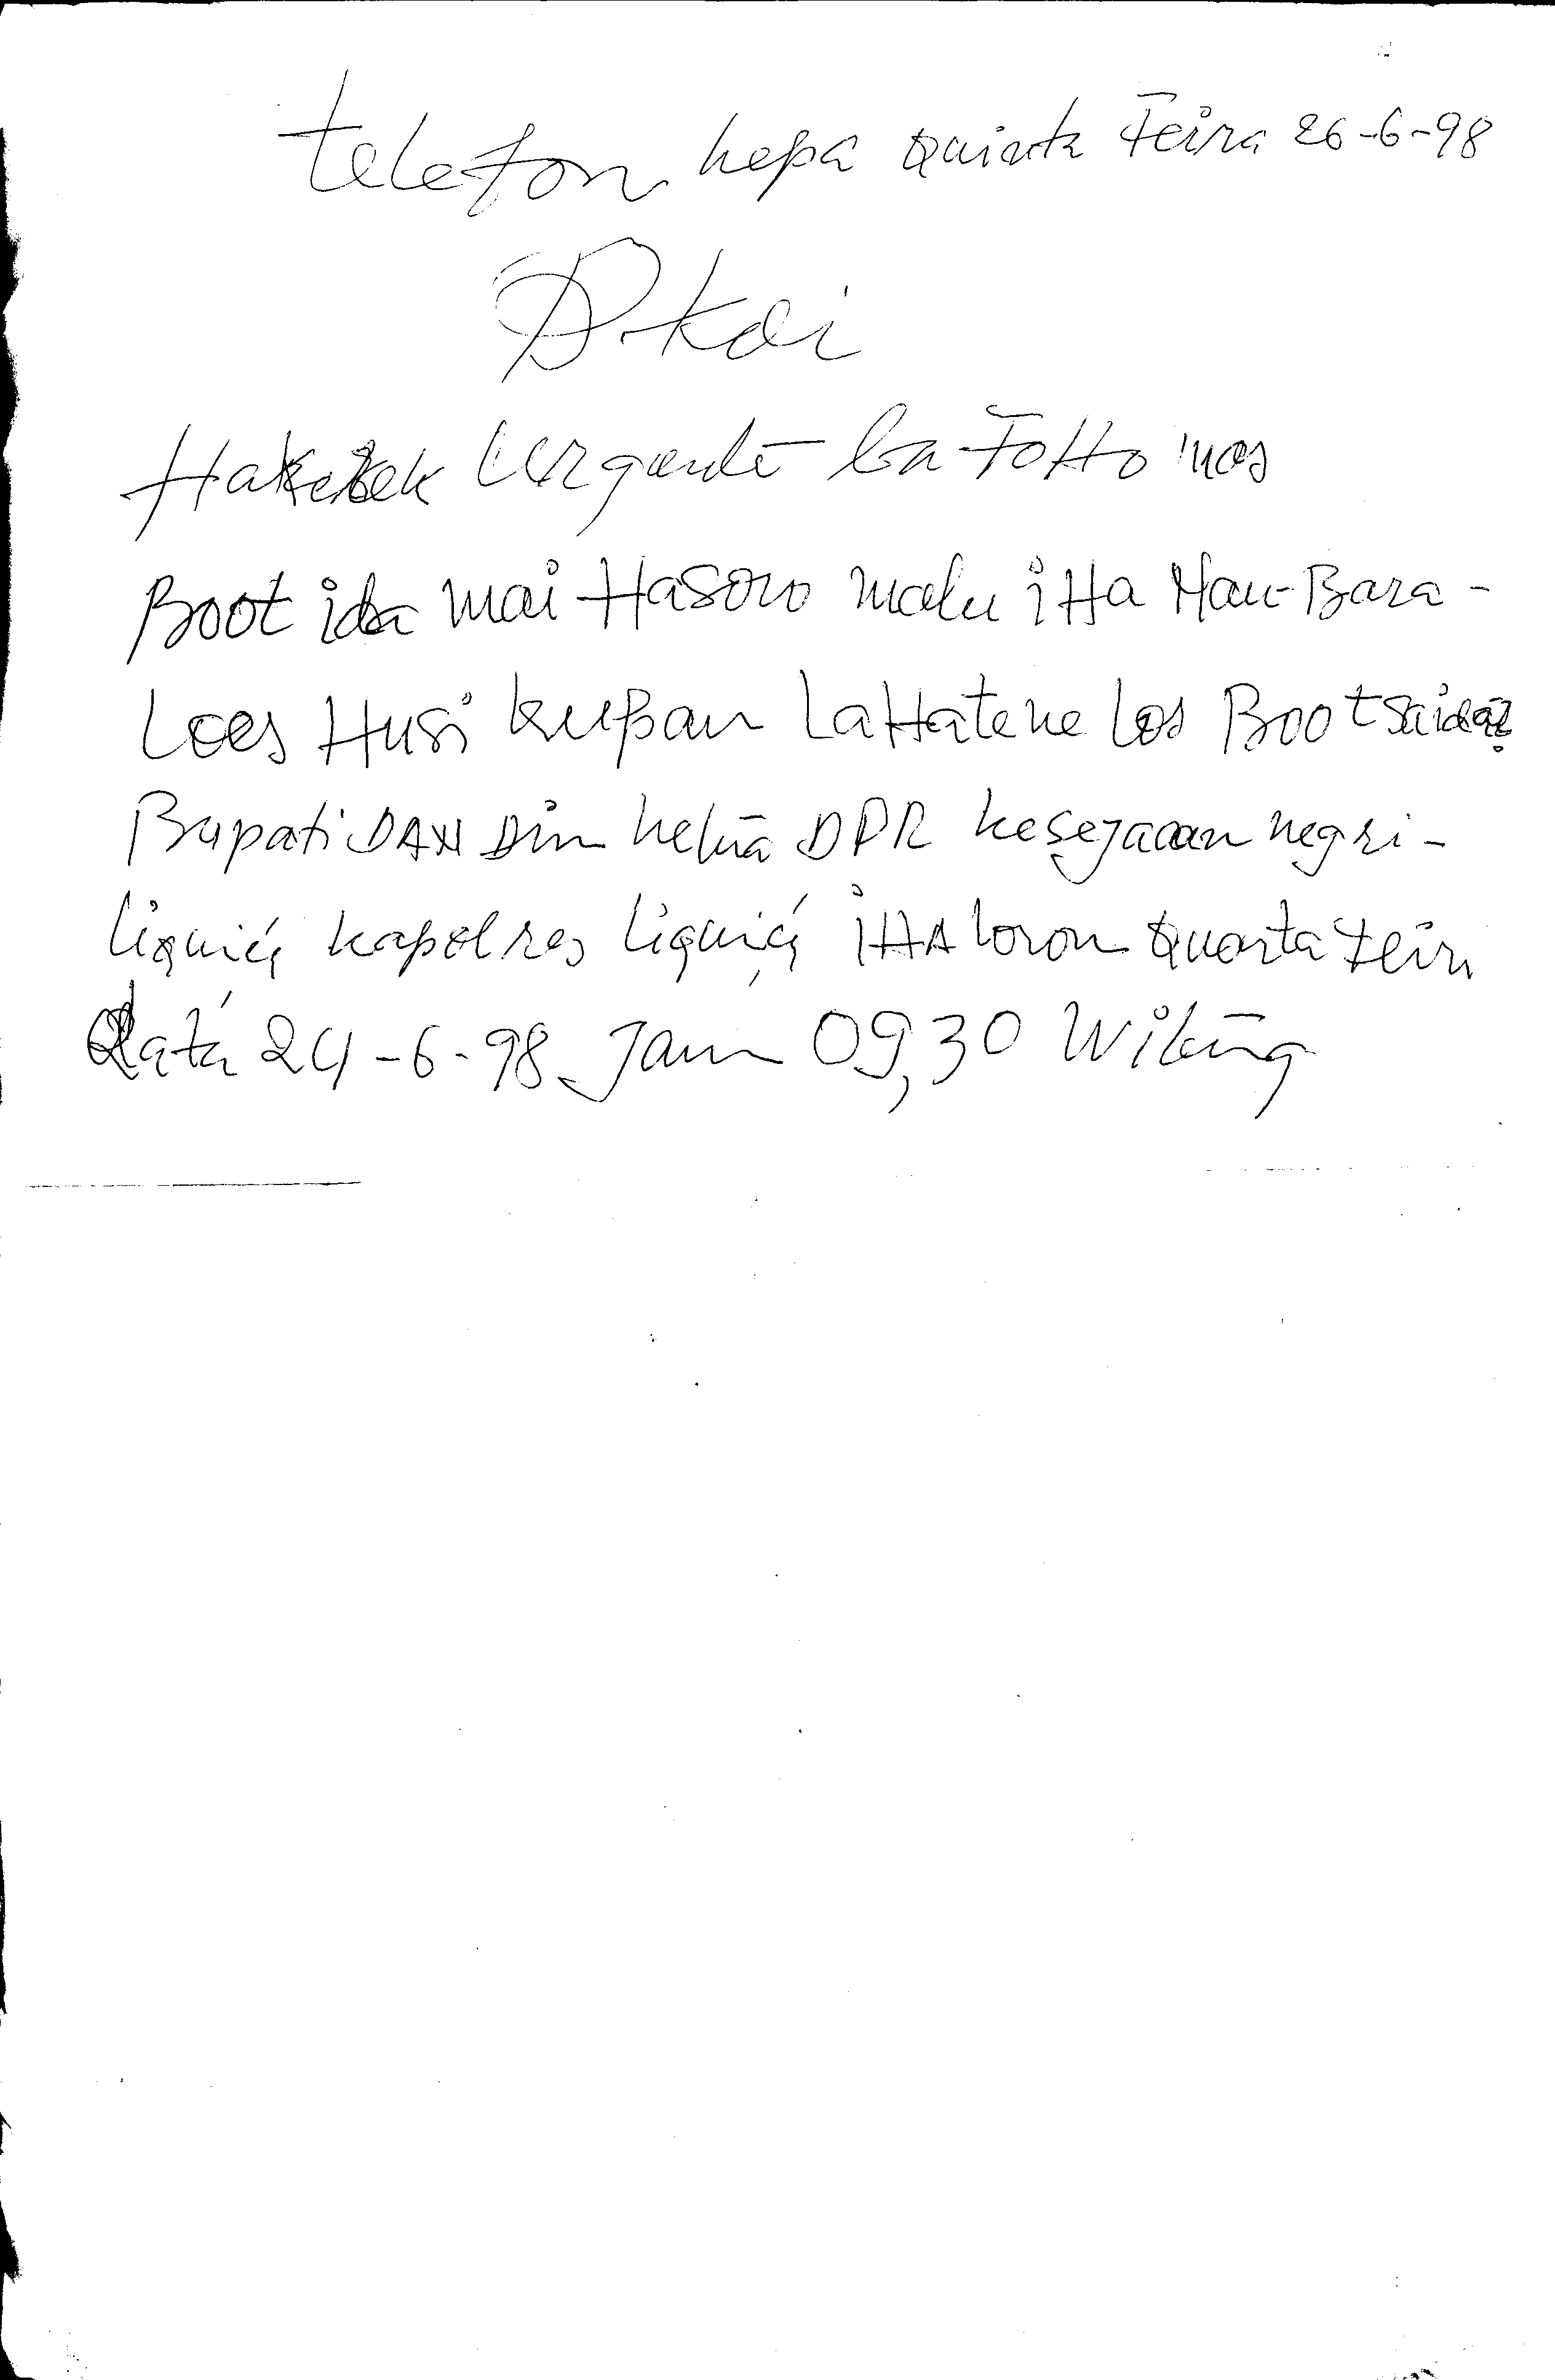 telefon hepa Quinta Feira 26-6-98
D. Koi
Haketek Urgente ba Fotto nos
Boot ida mai Hasoro malu iHa Mau-Bara-
Loes Husi kupan LaHatene Los Boot saida?
Bupati DAN Dim ketua DPR kesejaaan negri-
liquiçá kapolres liquiçá iHA loron Quarta Feira
Data 24-6-98 Jam 09,30 Witeng